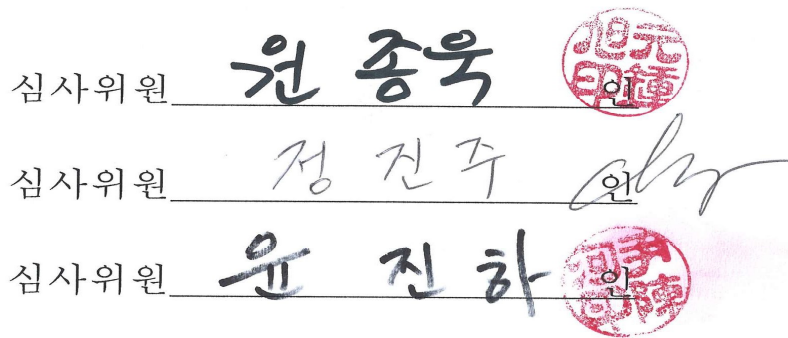 심사위원 원 종욱 인
심사위원 정 진 주 인
심사위원 윤 진 하 인